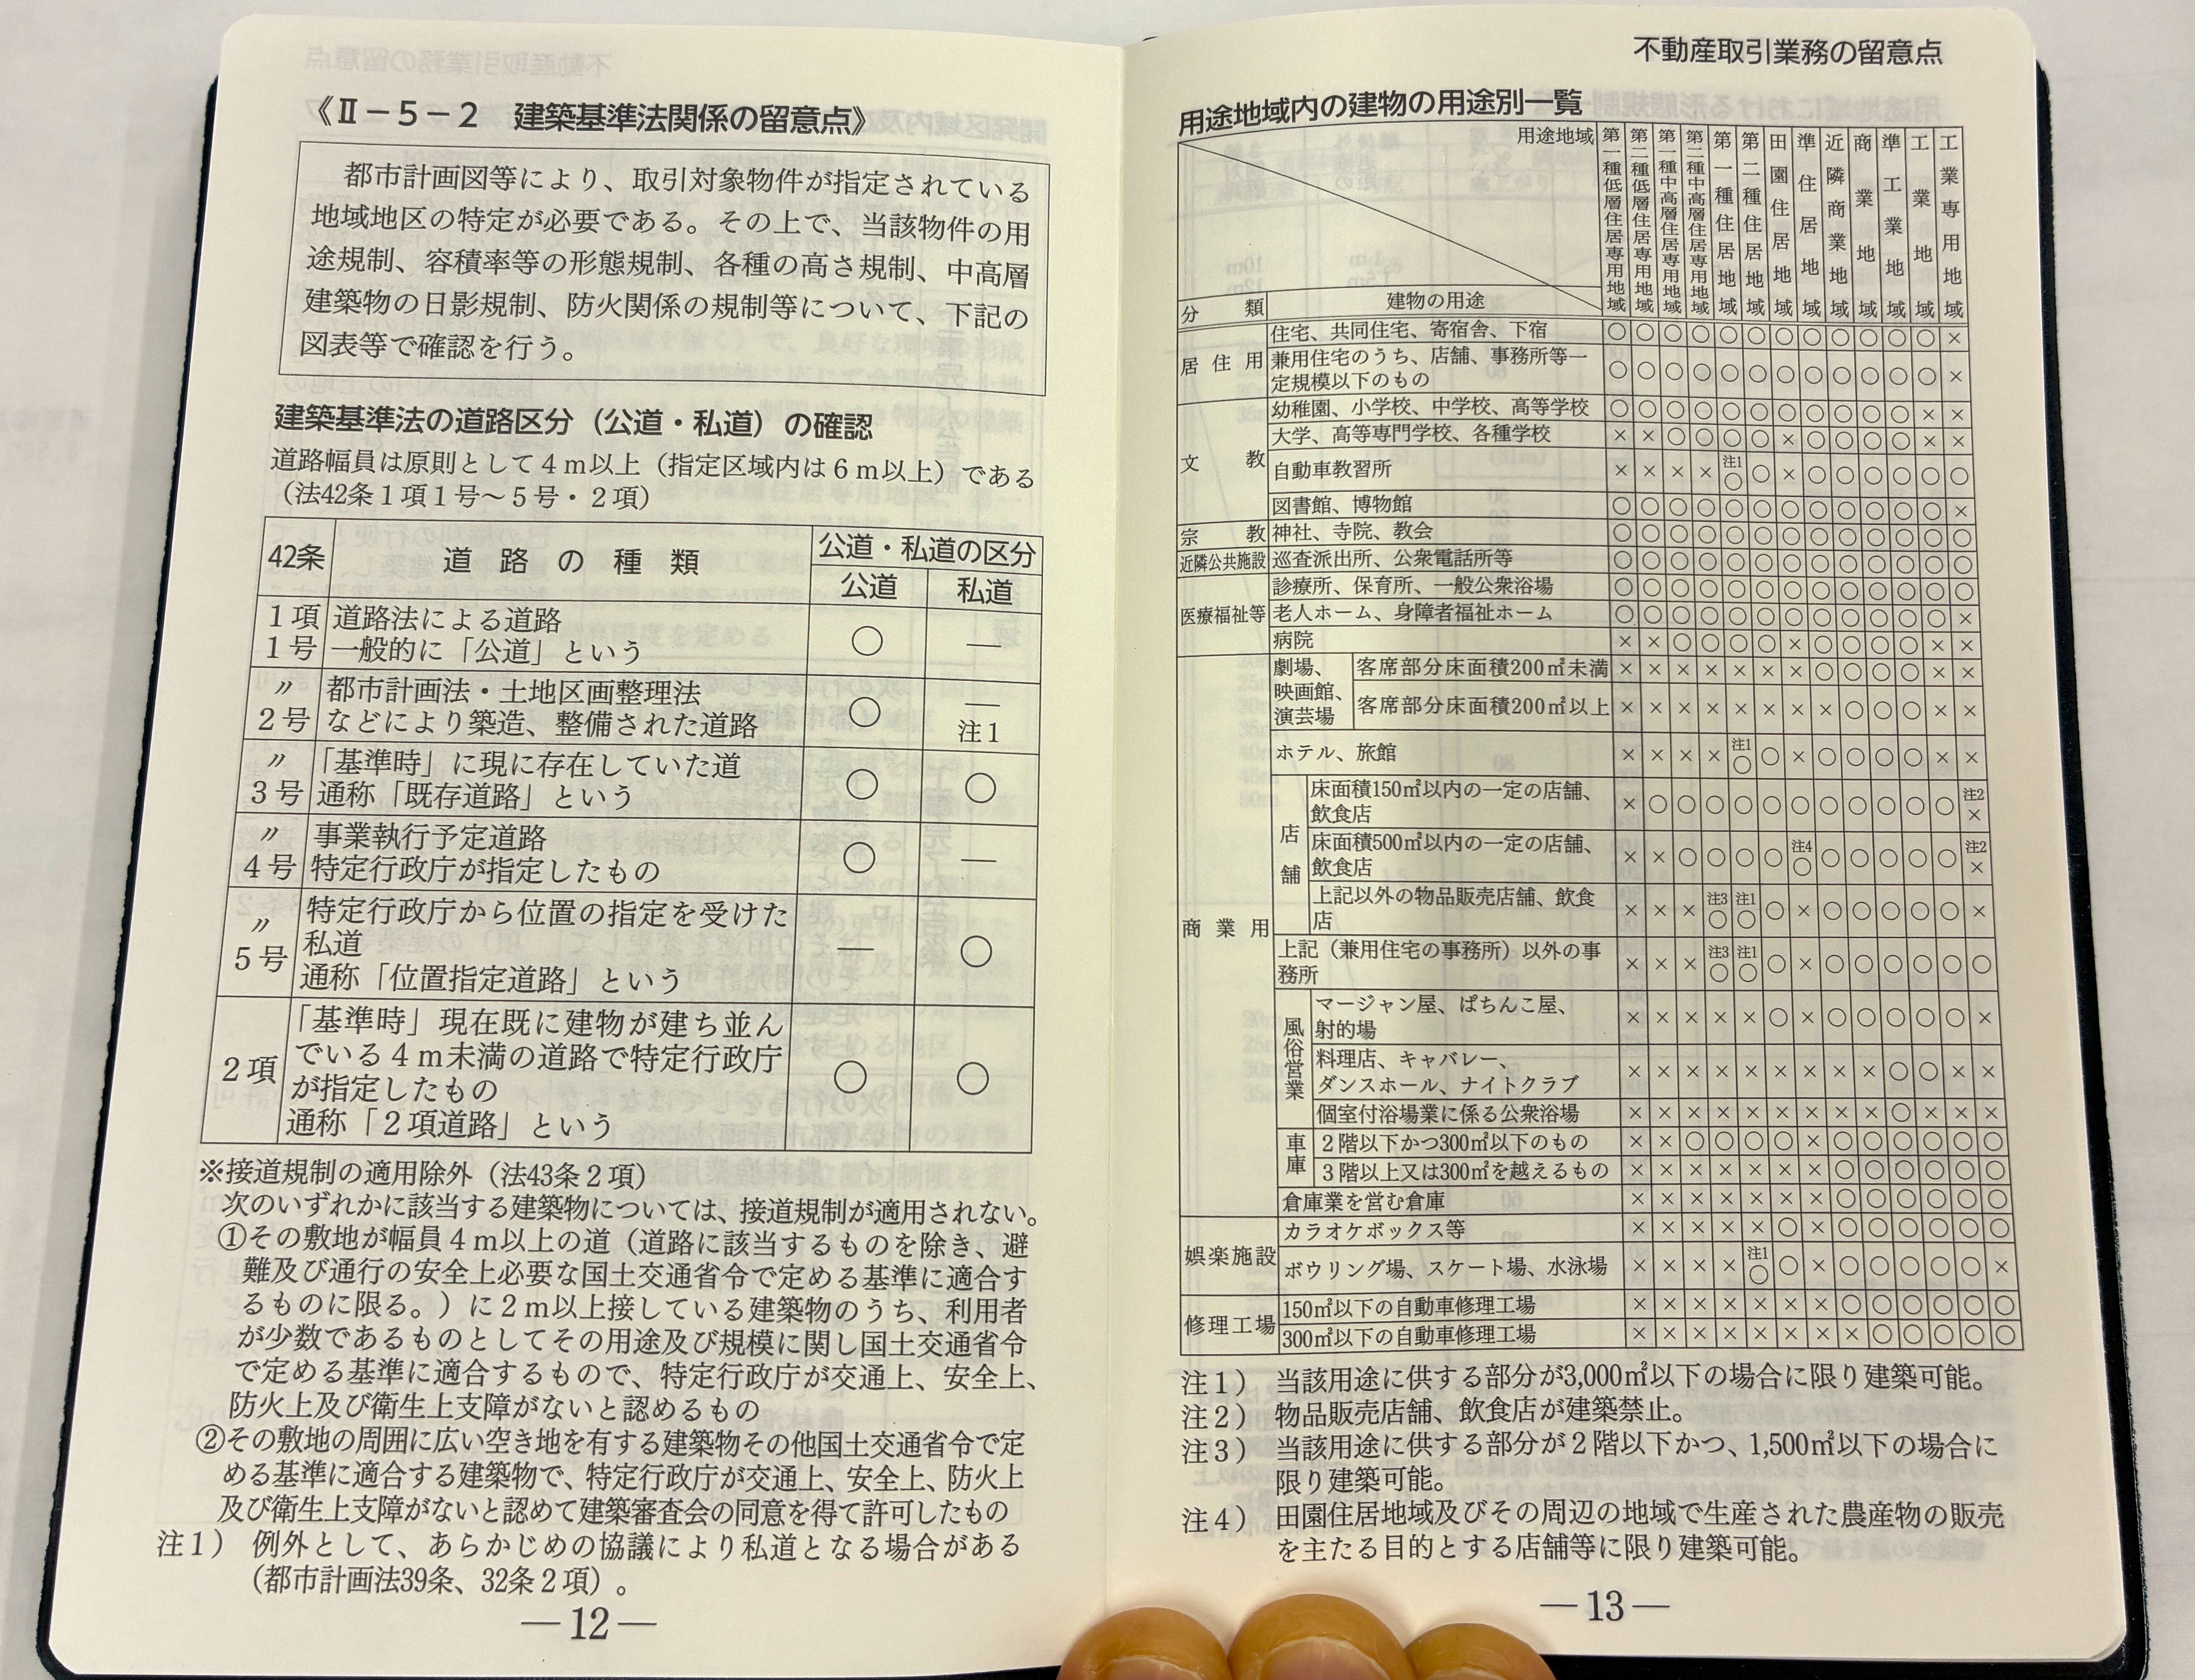 《Ⅱ－５－２　建築基準法関係の留意点》
都市計画図等により、取引対象物件が指定されている
地域地区の特定が必要である。その上で、当該物件の用
途規制、容積率等の形態規制、各種の高さ規制、中高層
建築物の日影規制、防火関係の規制等について、下記の
図表等で確認を行う。
建築基準法の道路区分（公道・私道）の確認
道路幅員は原則として４ｍ以上（指定区域内は６ｍ以上）である
（法42条１項１号～５号・２項）
42条　道路の種類　公道・私道の区分
公道　私道
１項　道路法による道路
１号　一般的に「公道」という　○　―
〃　都市計画法・土地区画整理法　―
２号　などにより築造、整備された道路　○　注１
〃　「基準時」に現に存在していた道
３号　通称「既存道路」という　○　○
〃　事業執行予定道路
４号　特定行政庁が指定したもの　○　―
〃　特定行政庁から位置の指定を受けた
５号　私道　―　○
通称「位置指定道路」という
２項　「基準時」現在既に建物が建ち並ん
でいる４ｍ未満の道路で特定行政庁
が指定したもの　○　○
通称「２項道路」という
※接道規制の適用除外（法43条２項）
次のいずれかに該当する建築物については、接道規制が適用されない。
①その敷地が幅員４ｍ以上の道（道路に該当するものを除き、避
難及び通行の安全上必要な国土交通省令で定める基準に適合す
るものに限る。）に２ｍ以上接している建築物のうち、利用者
が少数であるものとしてその用途及び規模に関し国土交通省令
で定める基準に適合するもので、特定行政庁が交通上、安全上、
防火上及び衛生上支障がないと認めるもの
②その敷地の周囲に広い空き地を有する建築物その他国土交通省令で定
める基準に適合する建築物で、特定行政庁が交通上、安全上、防火上
及び衛生上支障がないと認めて建築審査会の同意を得て許可したもの
注１）　例外として、あらかじめの協議により私道となる場合がある
（都市計画法39条、32条２項）。
―12―
不動産取引業務の留意点
用途地域内の建物の用途別一覧
用途地域　第一種低層住居専用地域　第二種低層住居専用地域　第一種中高層住居専用地域　第二種中高層住居専用地域　第一種住居地域　第二種住居地域　田園住居地域　準住居地域　近隣商業地域　商業地域　準工業地域　工業地域　工業専用地域
分類　建物の用途
居住用　住宅、共同住宅、寄宿舎、下宿　○○○○○○○○○○○○×
兼用住宅のうち、店舗、事務所等一
定規模以下のもの　○○○○○○○○○○○○×
文教　幼稚園、小学校、中学校、高等学校　○○○○○○○○○○○××
大学、高等専門学校、各種学校　××○○○○×○○○○××
自動車教習所　××××注1○○×○○○○○○
図書館、博物館　○○○○○○○○○○○○×
宗教　神社、寺院、教会　○○○○○○○○○○○○○
近隣公共施設　巡査派出所、公衆電話所等　○○○○○○○○○○○○○
医療福祉等　診療所、保育所、一般公衆浴場　○○○○○○○○○○○○○
老人ホーム、身障者福祉ホーム　○○○○○○○○○○○○×
病院　××○○○○×○○○○××
商業用　劇場、映画館、演芸場　客席部分床面積200㎡未満　×××××××○○○○××
客席部分床面積200㎡以上　××××××××○○○××
ホテル、旅館　××××注1○○×○○○○××
店舗　床面積150㎡以内の一定の店舗、
飲食店　×○○○○○○○○○○○注2×
床面積500㎡以内の一定の店舗、
飲食店　××○○○○注4○○○○○○注2×
上記以外の物品販売店舗、飲食
店　×××注3○注1○○×○○○○○×
上記（兼用住宅の事務所）以外の事
務所　×××注3○注1○○×○○○○○○
風俗営業　マージャン屋、ぱちんこ屋、
射的場　×××××○×○○○○○×
料理店、キャバレー、
ダンスホール、ナイトクラブ　×××××××××○○××
個室付浴場業に係る公衆浴場　×××××××××○×××
車庫　２階以下かつ300㎡以下のもの　××○○○○×○○○○○○
３階以上又は300㎡を越えるもの　×××××××○○○○○○
倉庫業を営む倉庫　×××××××○○○○○○
娯楽施設　カラオケボックス等　×××××○×○○○○○○
ボウリング場、スケート場、水泳場　××××注1○○×○○○○○×
修理工場　150㎡以下の自動車修理工場　×××××××○○○○○○
300㎡以下の自動車修理工場　××××××××○○○○○
注１）　当該用途に供する部分が3,000㎡以下の場合に限り建築可能。
注２）　物品販売店舗、飲食店が建築禁止。
注３）　当該用途に供する部分が２階以下かつ、1,500㎡以下の場合に
限り建築可能。
注４）　田園住居地域及びその周辺の地域で生産された農産物の販売
を主たる目的とする店舗等に限り建築可能。
―13―